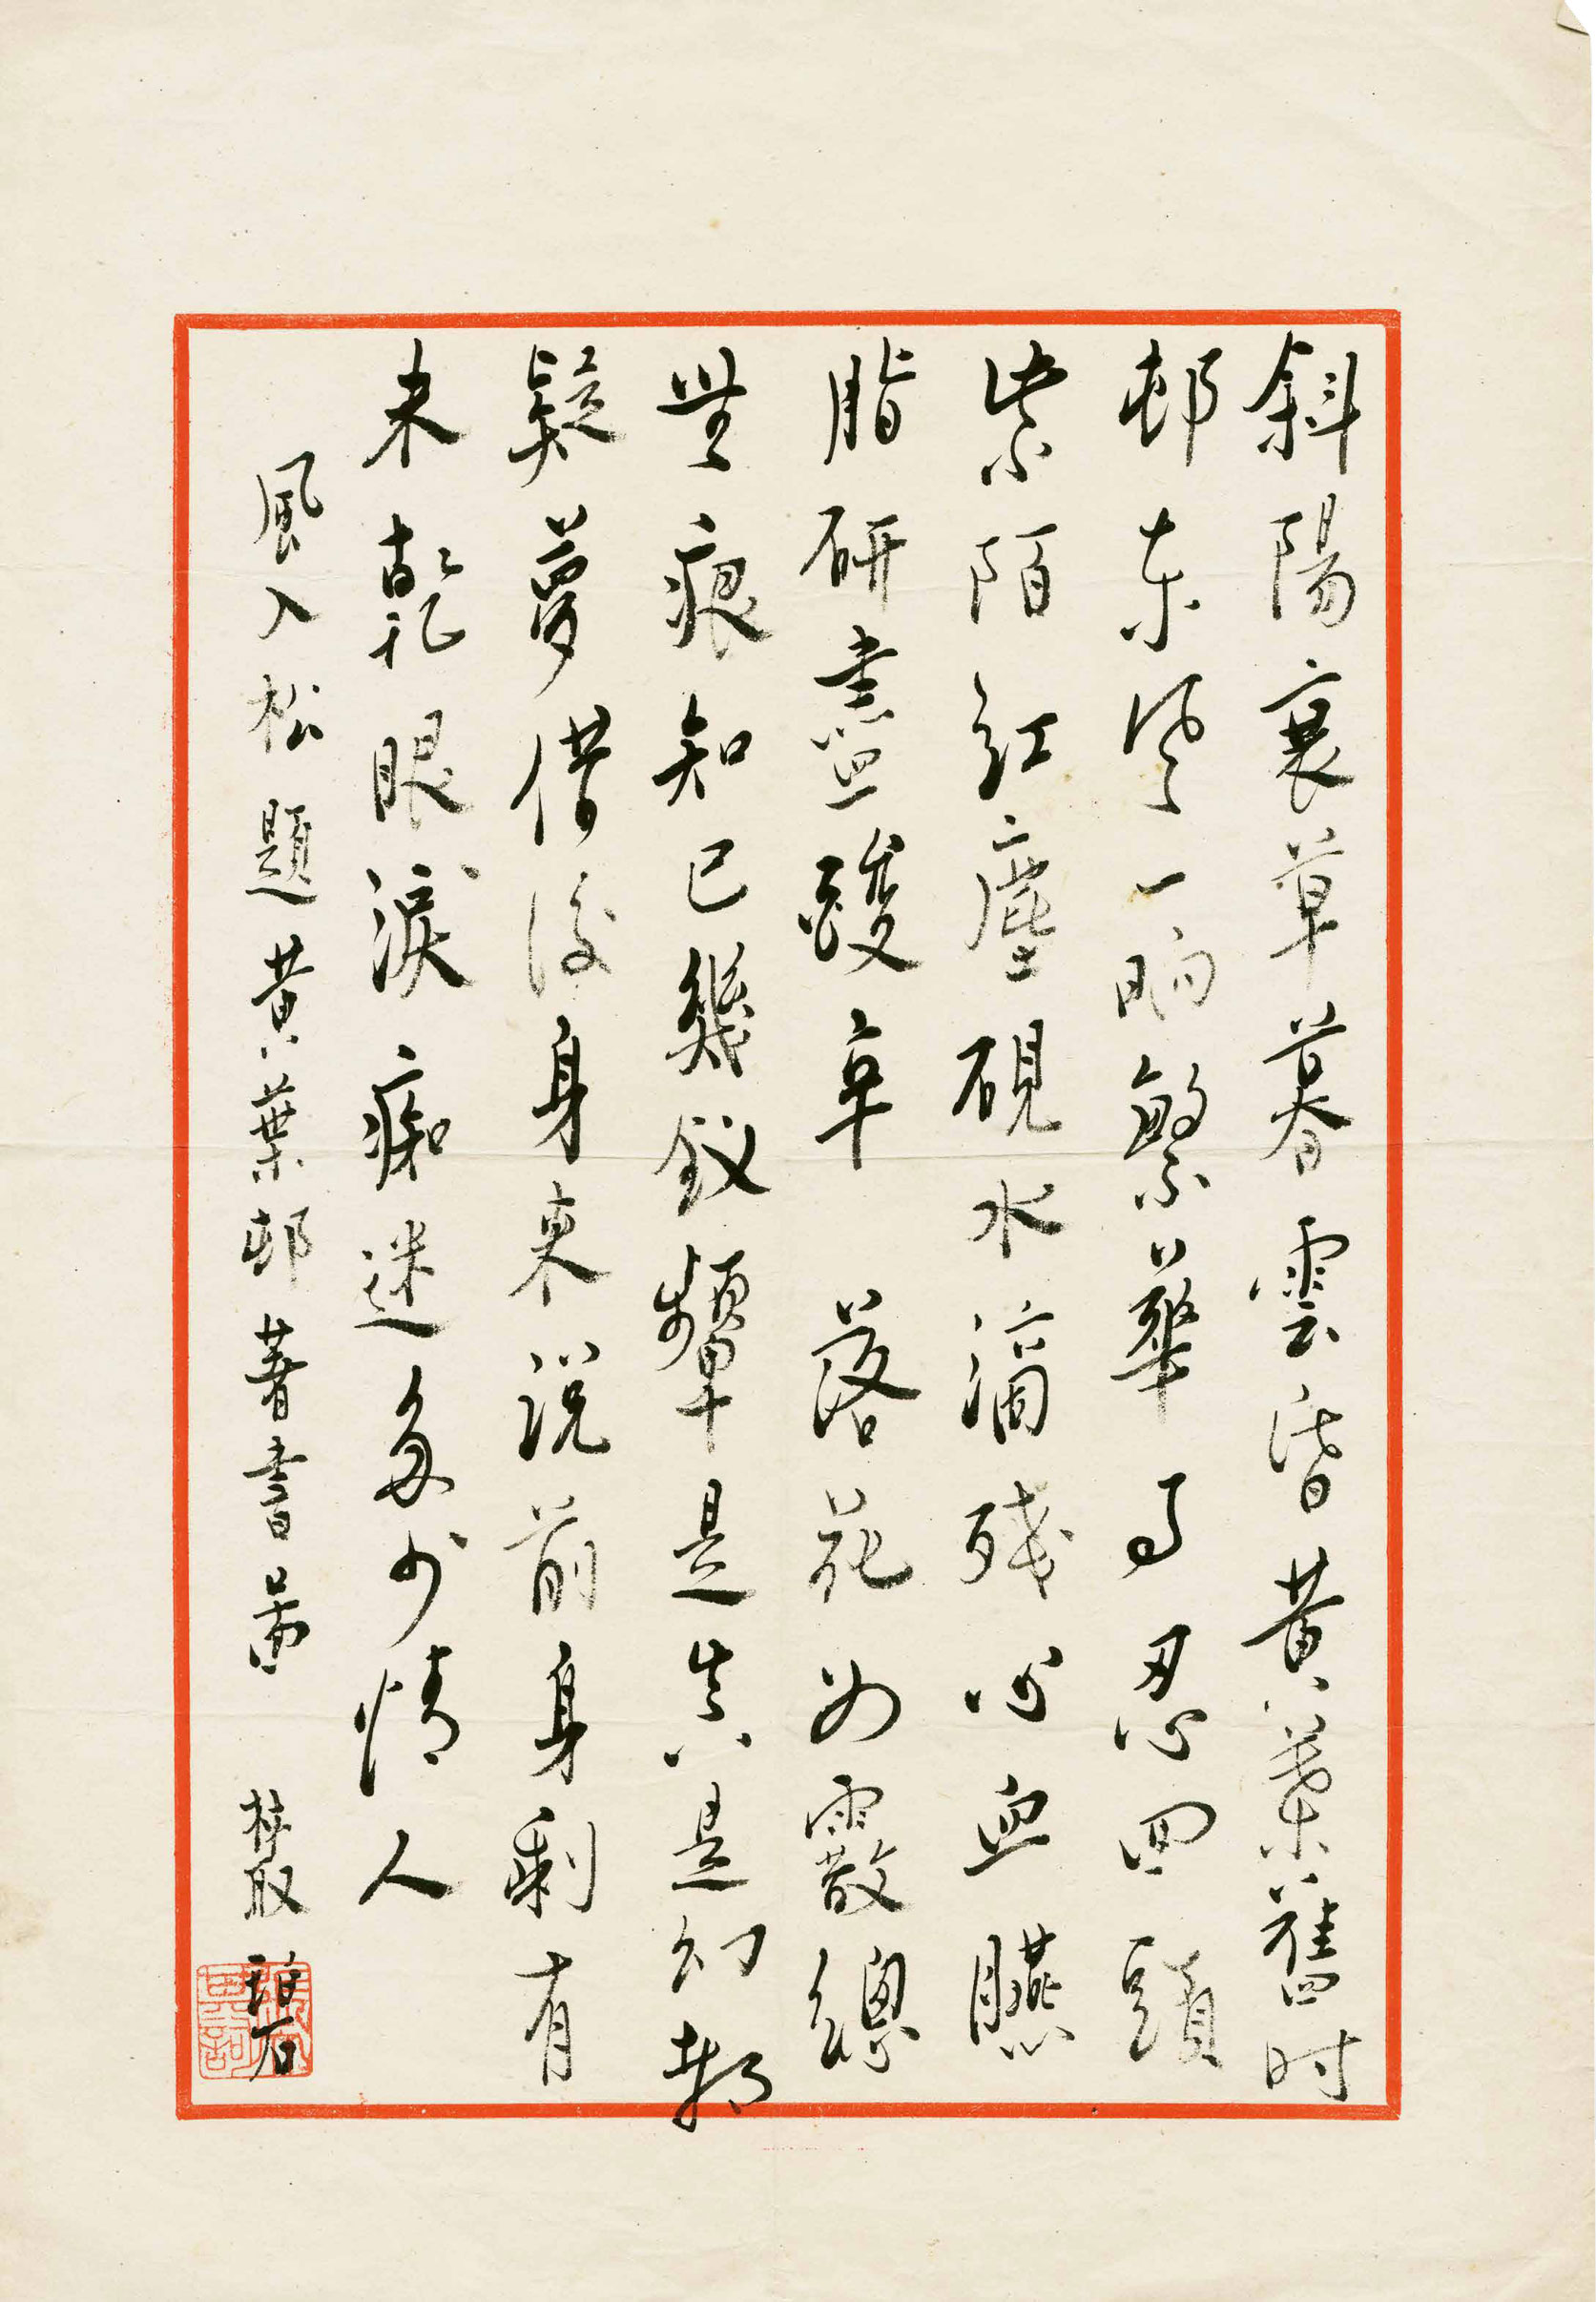 斜陽衰草暮雲昏黃葉舊時
邨東風一晌繁華事忍回頭
紫陌紅塵硯水滴殘心血臙
脂研盡酸辛　落花如霰總
無痕知己幾釵顰是真是幻都
疑夢借後身來說前身剩有
未乾眼淚痴迷多少情人
風入松 題黃葉邨著書啚　樷碧